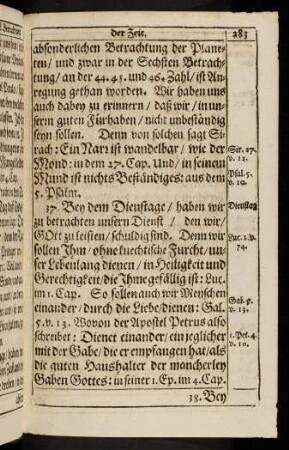 der Zeit. 283
absonderlichen Betrachtung der Plane-
ten/ und zwar in der Sechsten Betrach-
tung/ an der 44. 45. und 46. Zahl/ ist An-
regung gethan worden. Wir haben uns
auch dabey zu erinnern/ daß wir/ in un-
serm guten Fürhaben/ nicht unbeständig
seyn sollen. Denn von solchen sagt Si-
rach: Ein Narr ist wandelbar/ wie der
Mond: in dem 27. Cap. Und/ in seinem
Mund ist nichts Beständiges: aus dem
5. Psalm.
Sir. 27.
v. 12.
Psal. 5.
v. 10.
37. Bey dem Dienstage/ haben wir
zu betrachten unsern Dienst/ den wir/
GOtt zu leisten/ schuldig sind. Denn wir
sollen Ihm/ ohne knechtische Furcht/ un-
ser Lebenlang dienen/ in Heiligkeit und
Gerechtigkeit/ die Ihme gefällig ist: Luc.
im 1. Cap. So sollen auch wir Menschen
einander/ durch die Liebe/ dienen: Gal.
5. v. 13. Wovon der Apostel Petrus also
schreibet: Dienet einander/ ein jeglicher
mit der Gabe/ die er empfangen hat/ als
die guten Haushalter der mancherley
Gaben Gottes: in seiner 1. Ep. im 4. Cap.
Dienstag
Luc. 1. v.
74.
Gal. 5.
v. 13.
1. Pet. 4.
v. 10.
38. Bey